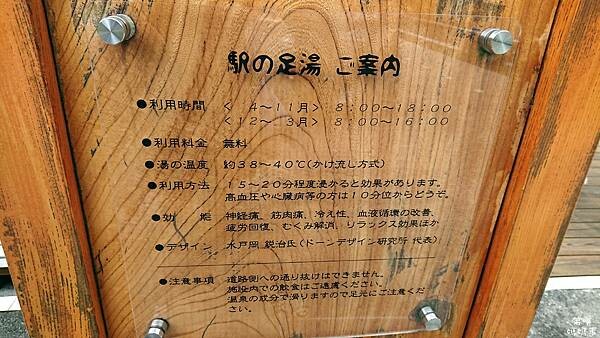 駅の足湯 ご案内
●利用時間 < 4～11月> 8:00～18:00
<12～ 3月> 8:00～16:00
●利用料金 無料
●湯の温度 約38～40℃(かけ流し方式)
●利用方法 15～20分程度浸かると効果があります。
高血圧や心臓病等の方は10分位からどうぞ。
●効 能 神経痛、筋肉痛、冷え性、血液循環の改善、
疲労回復、むくみ解消、リラックス効果ほか
●デザイン 水戸岡 鋭治氏(ドーンデザイン研究所 代表)
●注意事項 道路側への通り抜けはできません。
施設内での飲食はご遠慮ください。
温泉の成分で滑りますので足元にご注意くだ
さい。